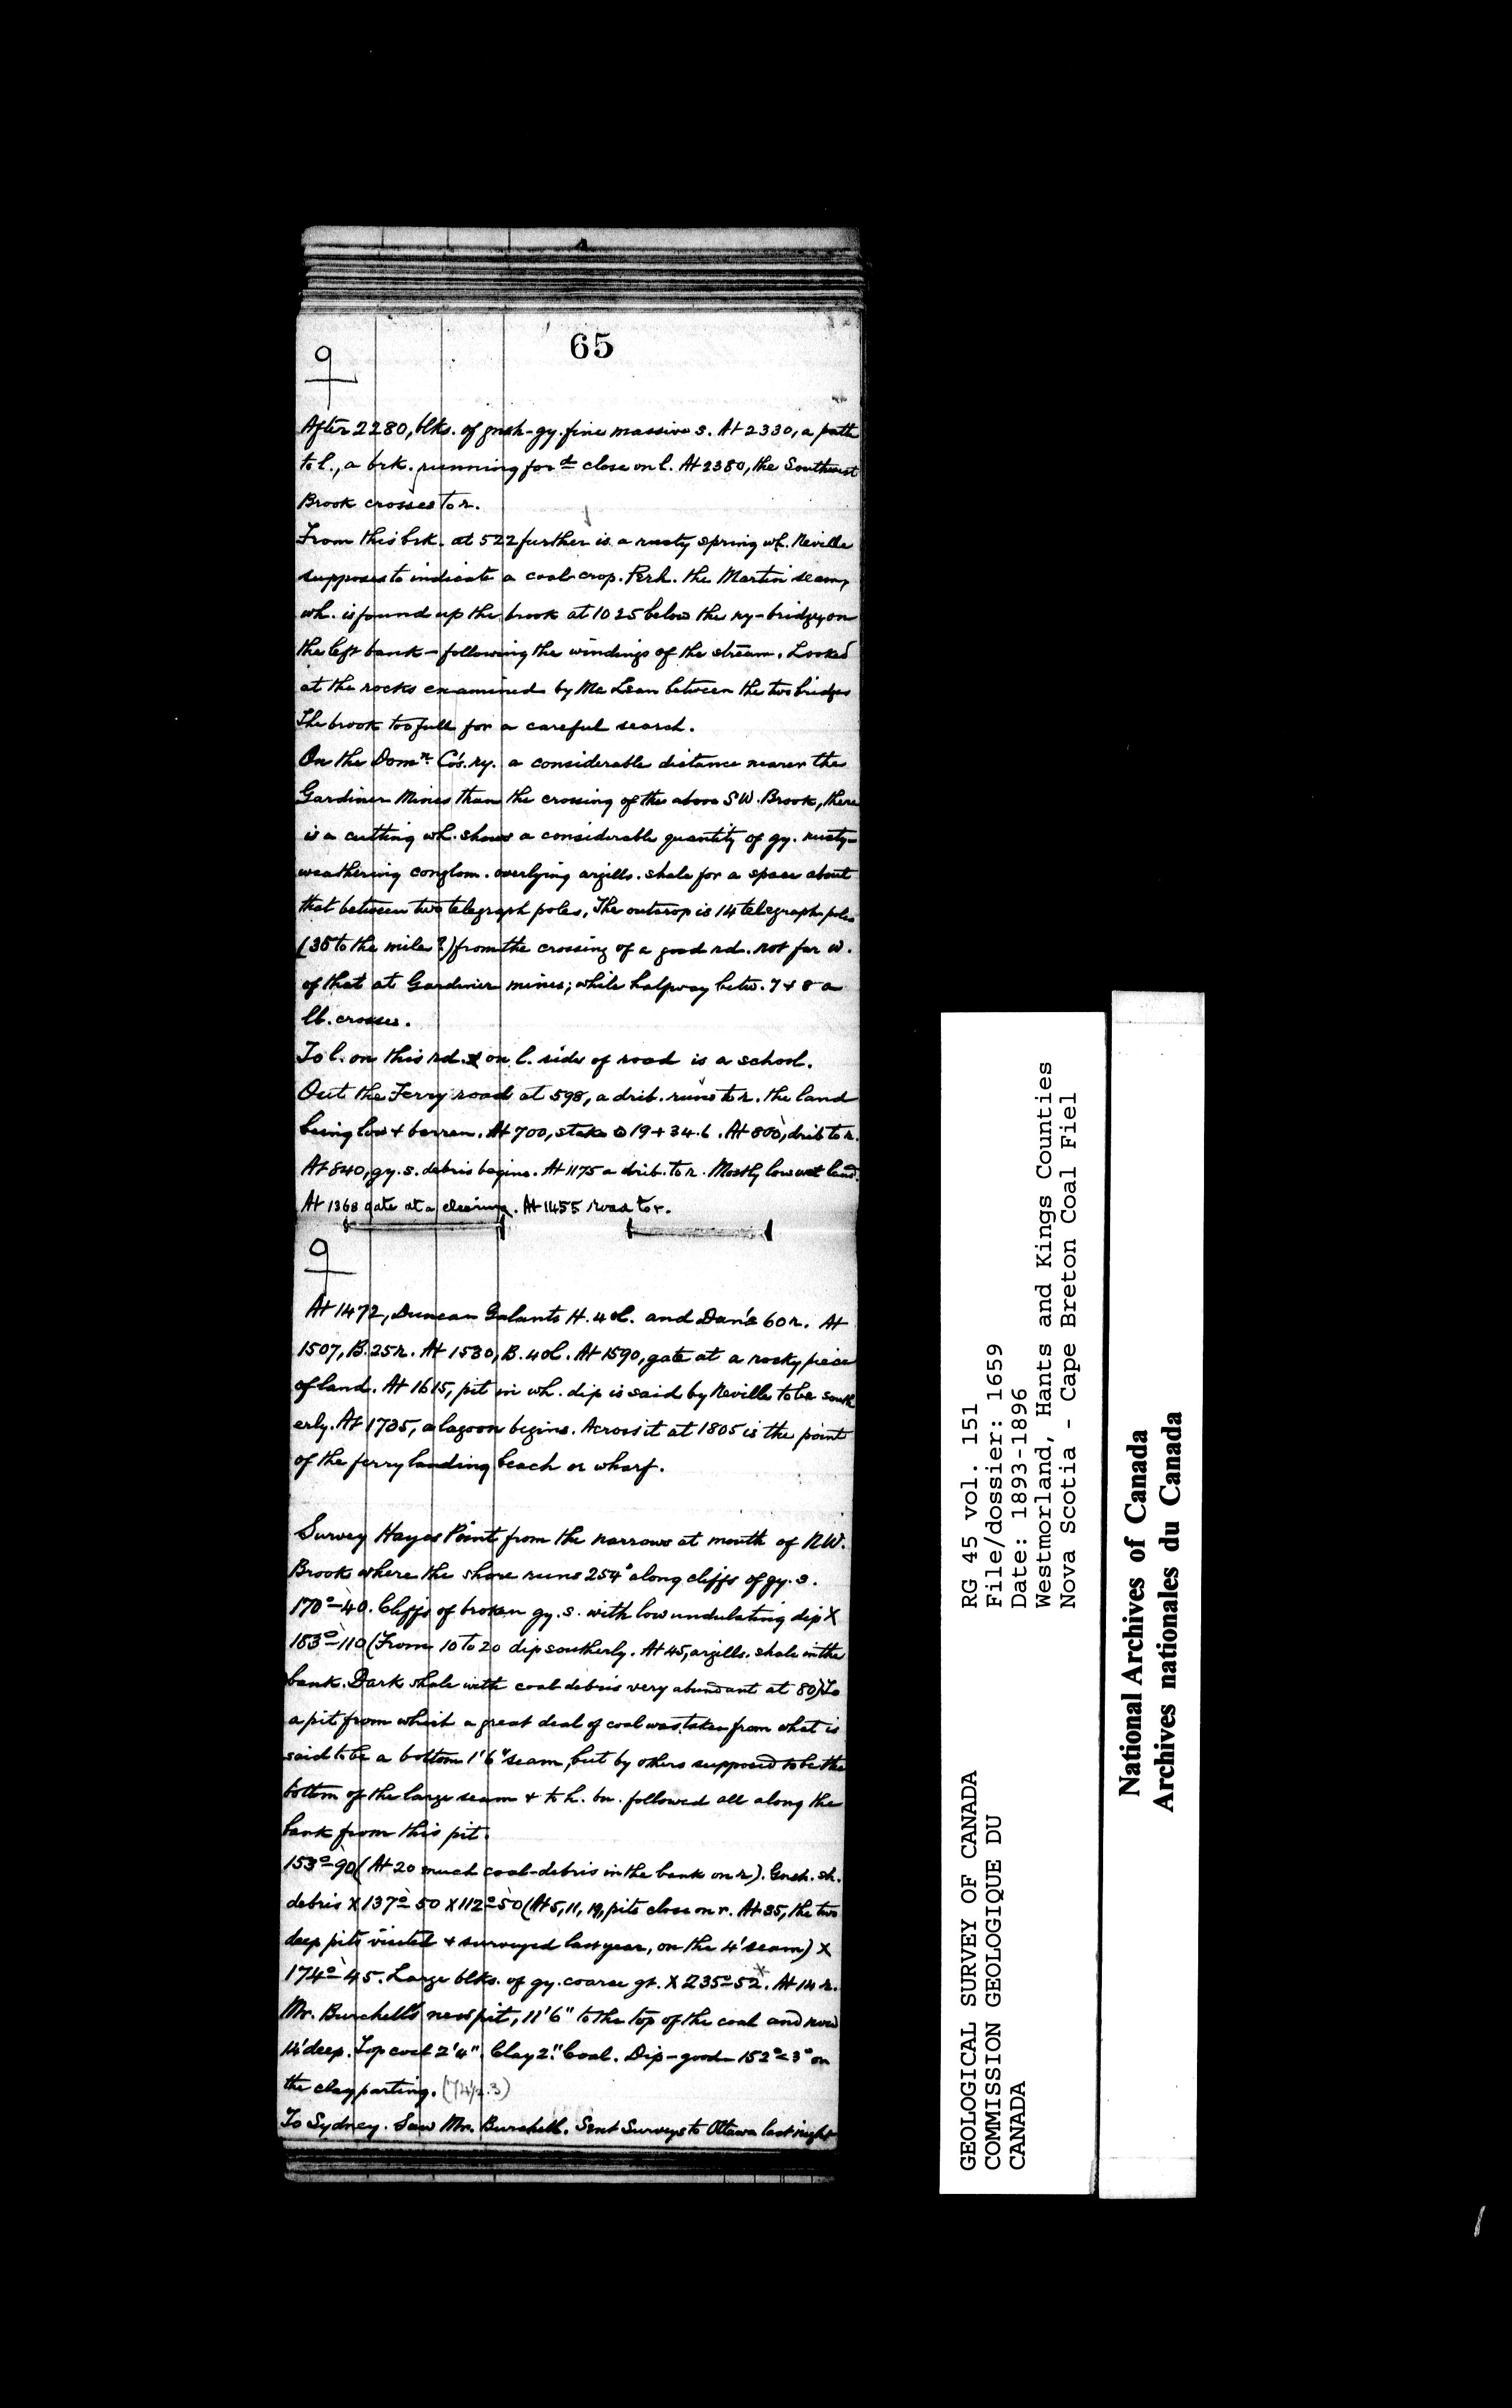 65
After 2280, blks. of gnsh-gy. fine massive s. At 2330, a path
to l., a brk. running ford close on l. At 2380, the Southwest
Brook crosses to r.
From this brk. at 522 further is a rusty spring wh. Neville
supposes to indicate a coal-crop. Perh. the Martin seam,
wh. is found up the brook at 1025 below the ry-bridge, on
the left bank - following the windings of the stream. Looked
at the rocks examined by McLean between the two bridges
The brook too full for a careful search.
On the Domn. Co's. ry. a considerable distance nearer the
Gardiner Mines than the crossing of the above SW. Brook, there
is a cutting wh. shows a considerable quantity of gy. rusty-
weathering conglom. overlying argills. shale for a space about
that between two telegraph poles. The outcrop is 14 telegraph-poles
(35 to the mile?) from the crossing of a good rd. not far w.
of that at Gardiner mines; while halfway betw. 7 + 8 a
lb. crosses.
To l. on this rd. & on l. side of road is a school.
Out the Ferry road at 598, a drib. runs to r. the land
being low + barren. At 700, stake ⊙ 19 + 34.6. At 800, drib to r.
At 840, gy. s. debris begins. At 1175 a drib. to r. Mostly low wet land.
At 1368 gate at a clearing. At 1455 road to r.
At 1472, Duncan Galants H. 40l. and Dan's 60r. At
1507, B. 25r. At 1530, B. 40l. At 1590, gate at a rocky piece
of land. At 1615, pit in wh. dip is said by Neville to be south
erly. At 1735, a lagoon begins. Across it at 1805 is the point
of the ferry landing beach or wharf.
Survey Hayes Point from the narrows at mouth of NW.
Brook where the shore runs 254° along cliffs of gy. s.
170°-40. Cliffs of broken gy. s. with low undulating dip X
153°-110 (From 10 to 20 dip southerly. At 45, argills. shale in the
bank. Dark shale with coal debris very abundant at 80) To
a pit from which a great deal of coal was taken from what is
said to be a bottom 1'6" seam, but by others supposed to be the
bottom of the large seam + to h. bn. followed all along the
bank from this pit.
153°-90 (At 20 much coal-debris in the bank on r). Gnsh. sh.
debris X 137°-50 X 112°-50 (At 5, 11, 19, pits close on r. At 35, the two
deep pits visited + surveyed last year, on the 4' seam) X
174°-45. Large blks. of gy. coarse gt. X 235°-52*. At 14 r.
Mr. Burchell's new pit, 11'6" to the top of the coal and now
14' deep. Top coal 2'4". Clay 2". Coal. Dip-good- 152°<3° on
the clay parting.
To Sydney. Saw Mr. Burchell. Sent Surveys to Ottawa last night
GEOLOGICAL SURVEY OF CANADA
COMMISSION GEOLOGIQUE DU
CANADA
RG 45 vol. 151
File/dossier: 1659
Date: 1893-1896
Westmorland, Hants and Kings Counties
Nova Scotia - Cape Breton Coal Fiel
National Archives of Canada
Archives nationales du Canada